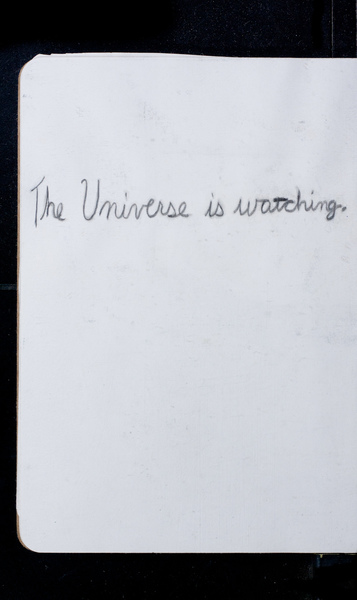 The Universe is watching.